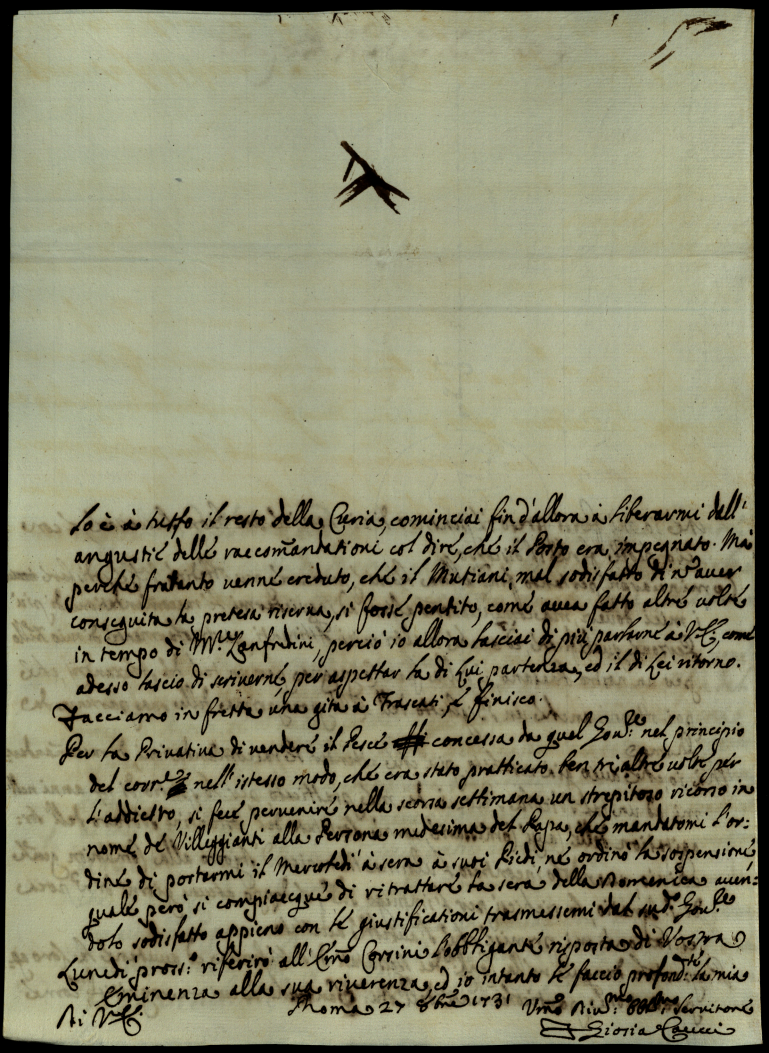 lo è à tutto il resto della Curia, cominciai fin d'allora à liberarmi dall'
angustie delle raccom̃andationi col dire, che il Posto era impegnato. Mà
perche fratanto venne creduto, che il Mutiani mal sodisfatto di nõ aver
conseguita la pretesa riserva, si fosse pentito, come avea fatto altre volte
in tempo di Mr. Lanfredini, perciò io allora lasciai di più parlarne à V. E., come
adesso lascio di scriverne, per aspettar la di Lui partenza, ed il di Lei ritorno.
Facciamo in fretta una gita à Frascati, e finisco.
Per la Privativa di vendere il Pesce concessa da quel Gov.re nel principio
del corr.e nell'istesso modo, che era stato pratticato ben tri altre volte per
l'addietro, si fece pervenire nella scorsa settimana un strepitoso ricorso in
nome de Villeggianti alla Persona medesima del Papa, che mandatomi l'or-
dine di portarmi il Mercoledì à sera à suoi Piedi, ne ordinò la sospensione,
quale però si compiacque di ritrattare la sera della Domenica aven-
dolo sodisfatto appieno con le giustificationi trasmessemi dal sud.o Gov.re
Lunedì pross.o riferirò all'Em̃o Corsini l'obbligante risposta di Vostra
Eminenza alla sua riverenza, ed io intanto le faccio profond.te la mia
Di V. E.
Roma 27 8bre 1731
Um̃o Div.mo Obb.mo Servitore
Giosia Caucci